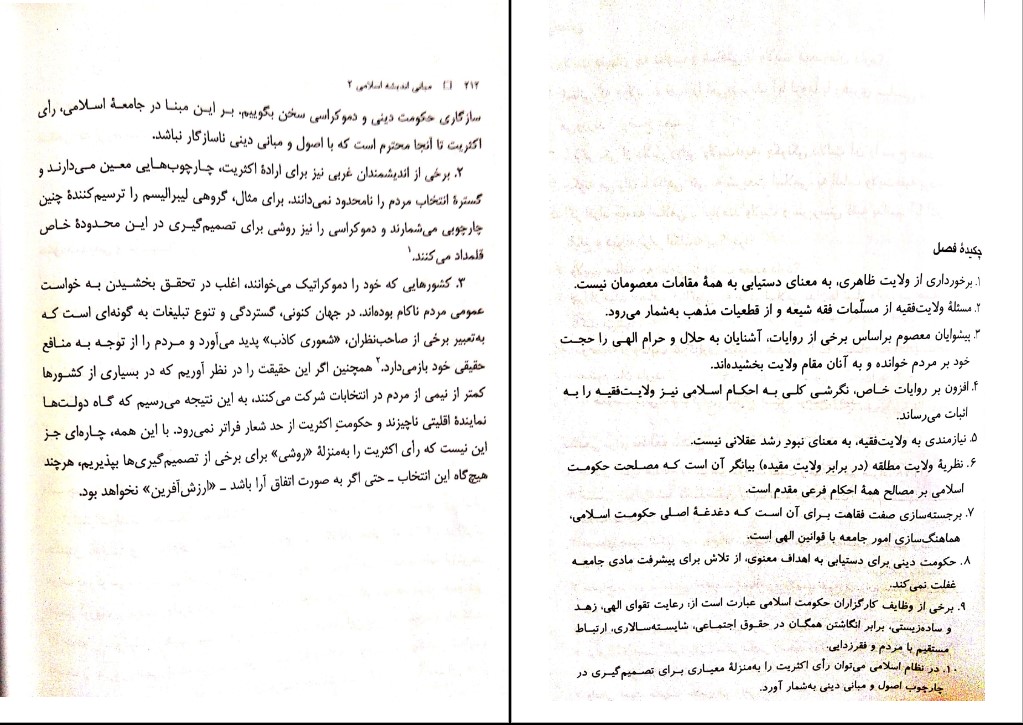 ۲۱۲ □ مبانی اندیشه اسلامی ۲
سازگاری حکومت دینی و دموکراسی سخن بگوییم. بر این مبنا در جامعهٔ اسلامی، رأی
اکثریت تا آنجا محترم است که با اصول و مبانی دینی ناسازگار نباشد.
۲. برخی از اندیشمندان غربی نیز برای ارادهٔ اکثریت، چارچوب‌هایی معین می‌دارند و
گسترهٔ انتخاب مردم را نامحدود نمی‌دانند. برای مثال، گروهی لیبرالیسم را ترسیم‌کنندهٔ چنین
چارچوبی می‌شمارند و دموکراسی را نیز روشی برای تصمیم‌گیری در این محدودهٔ خاص
قلمداد می‌کنند.۱
۳. کشورهایی که خود را دموکراتیک می‌خوانند، اغلب در تحقق بخشیدن به خواست
عمومی مردم ناکام بوده‌اند. در جهان کنونی، گستردگی و تنوع تبلیغات به گونه‌ای است که
به‌تعبیر برخی از صاحب‌نظران، «شعوری کاذب» پدید می‌آورد و مردم را از توجه به منافع
حقیقی خود بازمی‌دارد.۲ همچنین اگر این حقیقت را در نظر آوریم که در بسیاری از کشورها
کمتر از نیمی از مردم در انتخابات شرکت می‌کنند، به این نتیجه می‌رسیم که گاه دولت‌ها
نمایندهٔ اقلیتی ناچیزند و حکومتِ اکثریت از حد شعار فراتر نمی‌رود. با این همه، چاره‌ای جز
این نیست که رأی اکثریت را به‌منزلهٔ «روشی» برای برخی از تصمیم‌گیری‌ها بپذیریم، هرچند
هیچ‌گاه این انتخاب ـ حتی اگر به صورت اتفاق آرا باشد ـ «ارزش‌آفرین» نخواهد بود.
چکیدهٔ فصل
۱. برخورداری از ولایت ظاهری، به معنای دستیابی به همهٔ مقامات معصومان نیست.
۲. مسئلهٔ ولایت‌فقیه از مسلّمات فقه شیعه و از قطعیات مذهب به‌شمار می‌رود.
۳. پیشوایان معصوم براساس برخی از روایات، آشنایان به حلال و حرام الهی را حجت
خود بر مردم خوانده و به آنان مقام ولایت بخشیده‌اند.
۴. افزون بر روایات خاص، نگرشی کلی به احکام اسلامی نیز ولایت‌فقیه را به
اثبات می‌رساند.
۵. نیازمندی به ولایت‌فقیه، به معنای نبودِ رشد عقلانی نیست.
۶. نظریهٔ ولایت مطلقه (در برابر ولایت مقیده) بیانگر آن است که مصلحت حکومت
اسلامی بر مصالح همهٔ احکام فرعی مقدم است.
۷. برجسته‌سازی صفت فقاهت برای آن است که دغدغهٔ اصلی حکومت اسلامی،
هماهنگ‌سازی امور جامعه با قوانین الهی است.
۸. حکومت دینی برای دستیابی به اهداف معنوی، از تلاش برای پیشرفت مادی جامعه
غفلت نمی‌کند.
۹. برخی از وظایف کارگزاران حکومت اسلامی عبارت است از: رعایت تقوای الهی، زهد
و ساده‌زیستی، برابر انگاشتن همگان در حقوق اجتماعی، شایسته‌سالاری، ارتباط
مستقیم با مردم و فقرزدایی.
۱۰. در نظام اسلامی می‌توان رأی اکثریت را به‌منزلهٔ معیاری برای تصمیم‌گیری در
چارچوب اصول و مبانی دینی به‌شمار آورد.